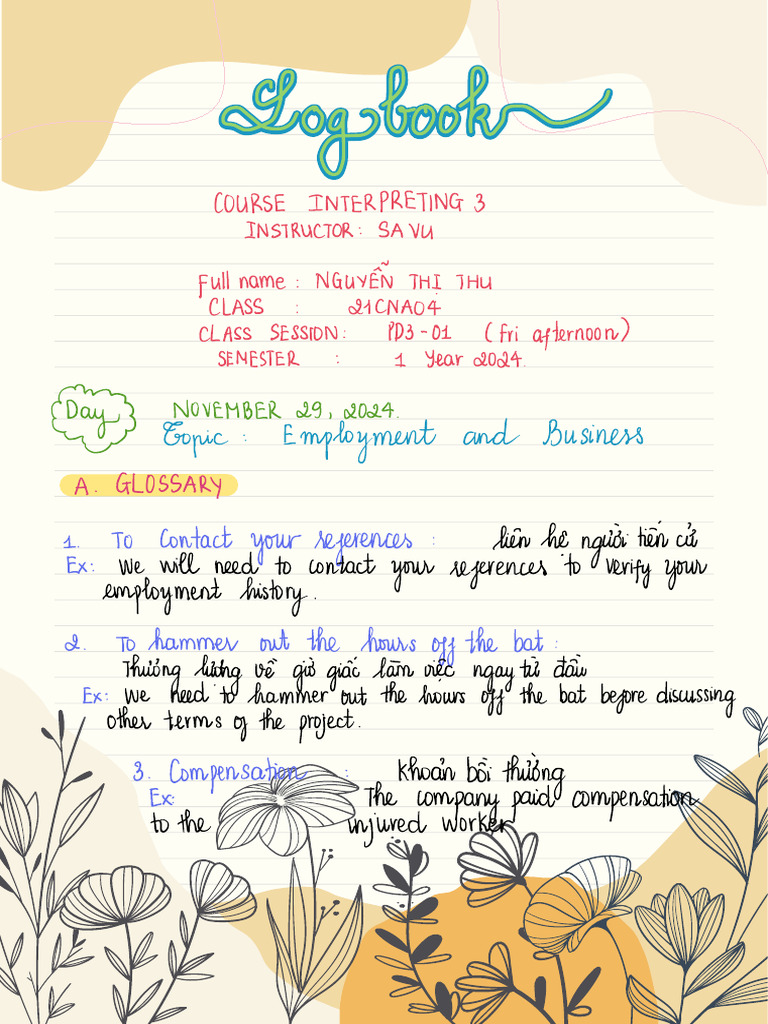 Logbook
COURSE INTERPRETING 3
INSTRUCTOR: SA VU
Full name : NGUYỄN THỊ THU
CLASS : 21CNA04
CLASS SESSION: PD3-01 (Fri afternoon)
SEMESTER : 1 Year 2024.
Day NOVEMBER 29, 2024.
Topic : Employment and Business
A. GLOSSARY
1. To Contact your references : liên hệ người tiến cử
Ex: We will need to contact your references to verify your
employment history.
2. To hammer out the hours off the bat :
Thương lượng về giờ giấc làm việc ngay từ đầu
Ex: We need to hammer out the hours off the bat before discussing
other terms of the project.
3. Compensation : khoản bồi thường
Ex: The company paid compensation
to the injured worker